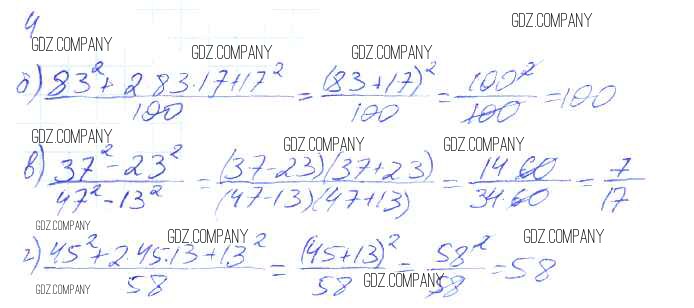 4
GDZ.COMPANY
GDZ.COMPANY GDZ.COMPANY GDZ.COMPANY
б) (83² + 2 83·17+17²)/100 = (83+17)²/100 = 100²/100 = 100
GDZ.COMPANY GDZ.COMPANY GDZ.COMPANY
в) (37² - 23²)/(47² - 13²) = (37-23)(37+23)/(47-13)(47+13) = 14 60/34·60 = 7/17
GDZ.COMPANY GDZ.COMPANY GDZ.COMPANY
г) (45² + 2·45·13 + 13²)/58 = (45+13)²/58 = 58²/58 = 58
GDZ.COMPANY GDZ.COMPANY